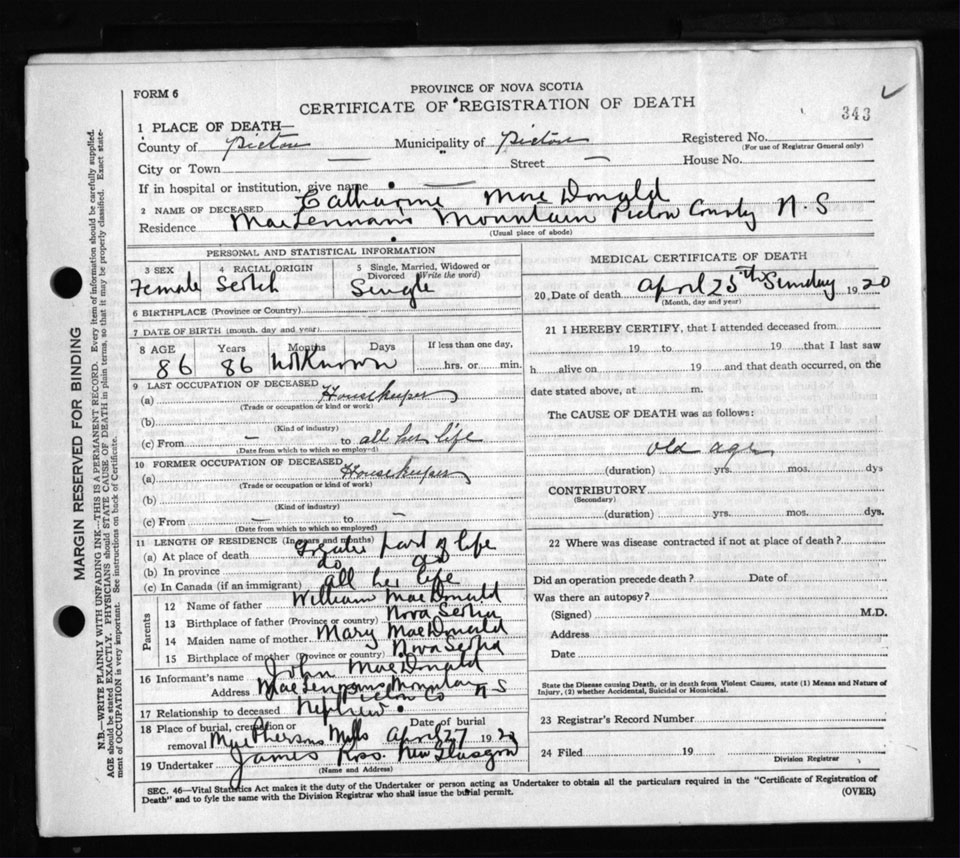 FORM 6
PROVINCE OF NOVA SCOTIA
CERTIFICATE OF REGISTRATION OF DEATH
343
1 PLACE OF DEATH—
County of Pictou Municipality of Pictou Registered No.
(For use of Registrar General only)
City or Town — Street — House No.
If in hospital or institution, give name —
2 NAME OF DECEASED Catharine MacDonald
Residence MacLennan's Mountain Pictou County N.S
(Usual place of abode)
PERSONAL AND STATISTICAL INFORMATION
3 SEX Female
4 RACIAL ORIGIN Scotch
5 Single, Married, Widowed or Divorced (Write the word) Single
6 BIRTHPLACE (Province or Country)
7 DATE OF BIRTH (month, day and year)
8 AGE 86 Years 86 Months Days not Known If less than one day, hrs. or min.
9 LAST OCCUPATION OF DECEASED
(a) Housekeeper
(Trade or occupation or kind or work)
(b)
(Kind of industry)
(c) From — to all her life
(Date from which to which so employed)
10 FORMER OCCUPATION OF DECEASED
(a) Housekeeper
(Trade or occupation or kind of work)
(b)
(Kind of industry)
(c) From — to —
(Date from which to which so employed)
11 LENGTH OF RESIDENCE (In years and months)
(a) At place of death Greater part of life
(b) In province do do
(c) In Canada (if an immigrant) all her life
Parents
12 Name of father William MacDonald
13 Birthplace of father (Province or country) Nova Scotia
14 Maiden name of mother Mary MacDonald
15 Birthplace of mother (Province or country) Nova Scotia
16 Informant's name John MacDonald
Address MacLennans Mountain N S
Pictou Co
17 Relationship to deceased Nephew
18 Place of burial, cremation or removal McPhersons Mills Date of burial April 27 1920
19 Undertaker James Ross New Glasgow
(Name and Address)
MEDICAL CERTIFICATE OF DEATH
20 Date of death April 25th Sunday 1920
(Month, day and year)
21 I HEREBY CERTIFY, that I attended deceased from
19 to 19 that I last saw
h alive on 19 and that death occurred, on the
date stated above, at m.
The CAUSE OF DEATH was as follows:
old age
(duration) yrs. mos. dys
CONTRIBUTORY
(Secondary)
(duration) yrs. mos. dys.
22 Where was disease contracted if not at place of death?
Did an operation precede death? Date of
Was there an autopsy?
(Signed) M.D.
Address
Date
State the Disease causing Death, or in death from Violent Causes, state (1) Means and Nature of
Injury, (2) whether Accidental, Suicidal or Homicidal.
23 Registrar's Record Number
24 Filed 19
Division Registrar
SEC. 46—Vital Statistics Act makes it the duty of the Undertaker or person acting as Undertaker to obtain all the particulars required in the "Certificate of Registration of
Death" and to fyle the same with the Division Registrar who shall issue the burial permit.
(OVER)
MARGIN RESERVED FOR BINDING
N.B.—WRITE PLAINLY WITH UNFADING INK—THIS IS A PERMANENT RECORD. Every item of information should be carefully supplied.
AGE should be stated EXACTLY. PHYSICIANS should STATE CAUSE OF DEATH in plain terms, so that it may be properly classified. Exact state-
ment of OCCUPATION is very important. See instructions on back of Certificate.